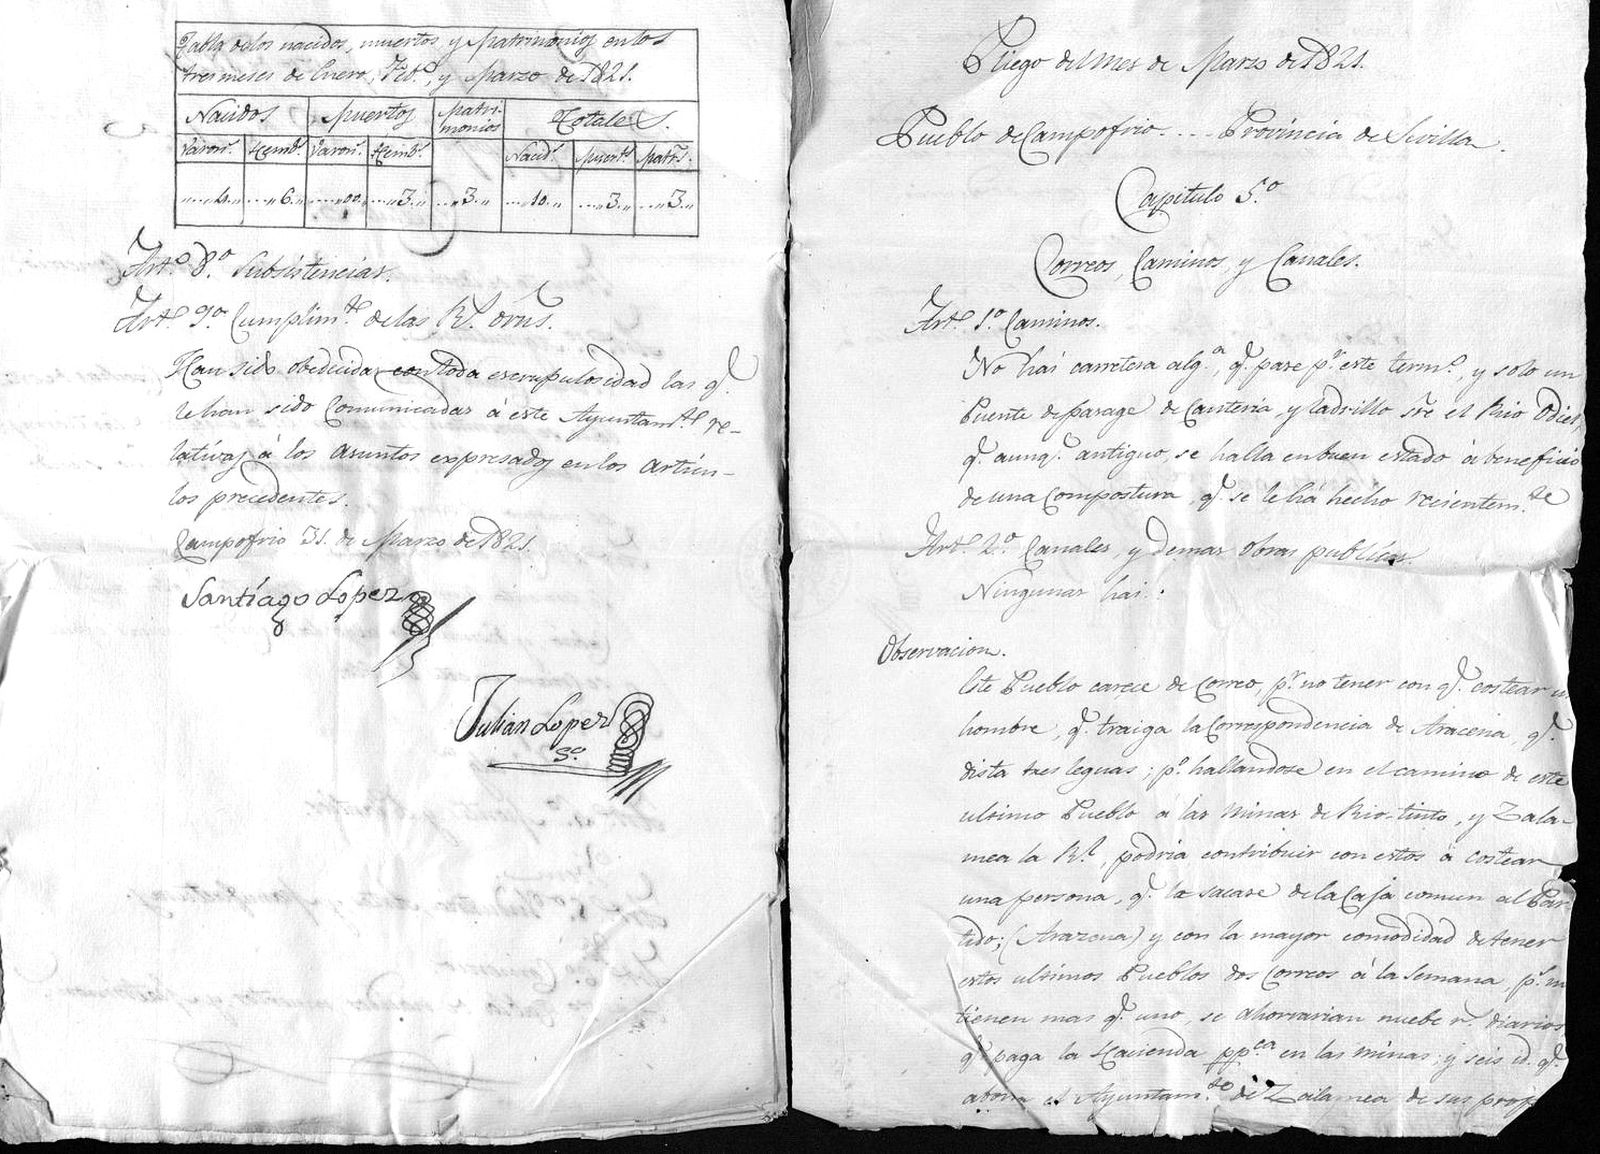 Tabla de los nacidos, muertos y Matrimonios en los
tres meses de Enero, Feb.º, y Marzo de 1821.
Nacidos Muertos Matri-monios Totales.
Varon.s Hemb.s Varon.s Hemb.s Nacid.s Muert.s Matr.s
....4.,, ....6.,, ....00.,, ....3.,, ...3.,, ....10.,, ....3.,, ...3.,,
Art.º 8.º Subsistencias.
Art.º 9.º Cumplim.to de las R.s orns.
Han sido obedecidas con toda escrupulosidad las q.e
le han sido comunicadas á este Ayuntam.to re-
lativas á los asuntos expresados en los artícu-
los precedentes.
Campofrio 31. de Marzo de 1821.
Santiago Lopez
Julian Lopez
S.º
Pliego del mes de Marzo de 1821.
Pueblo de Campofrio. ... Provincia de Sevilla.
Capitulo 5.º
Correos, Caminos, y Canales.
Art.º 1.º Caminos.
No hai carretera alg.a, q.e pase p.r este term.º, y solo un
Puente de parage de Canteria, y ladrillo sre el Rio Odiel,
q.e aunq.e antiguo, se halla en buen estado á beneficio
de una compostura, q.e se le há hecho recientem.te
Art.º 2.º Canales, y demas obras publicas.
Ningunas hai.
Observacion.
Este Pueblo carece de Correo, p.r no tener con q.e costear un
hombre, q.e traiga la Correspondencia de Aracena, q.e
dista tres leguas; p.º hallandose en el camino de este
ultimo Pueblo á las minas de Rio-tinto, y Zala-
mea la R.l, podria contribuir con estos á costear
una persona, q.e la sacase de la Caja comun al Par-
tido; (Arazena) y con la mayor comodidad de tener
estos ultimos Pueblos dos Correos á la semana, p.s no
tienen mas q.e uno, se ahorrarian nuebe r.s diarios
q.e paga la Hacienda pp.ca en las minas; y seis id. q.e
abona el Ayuntam.to de Zalamea de sus prop